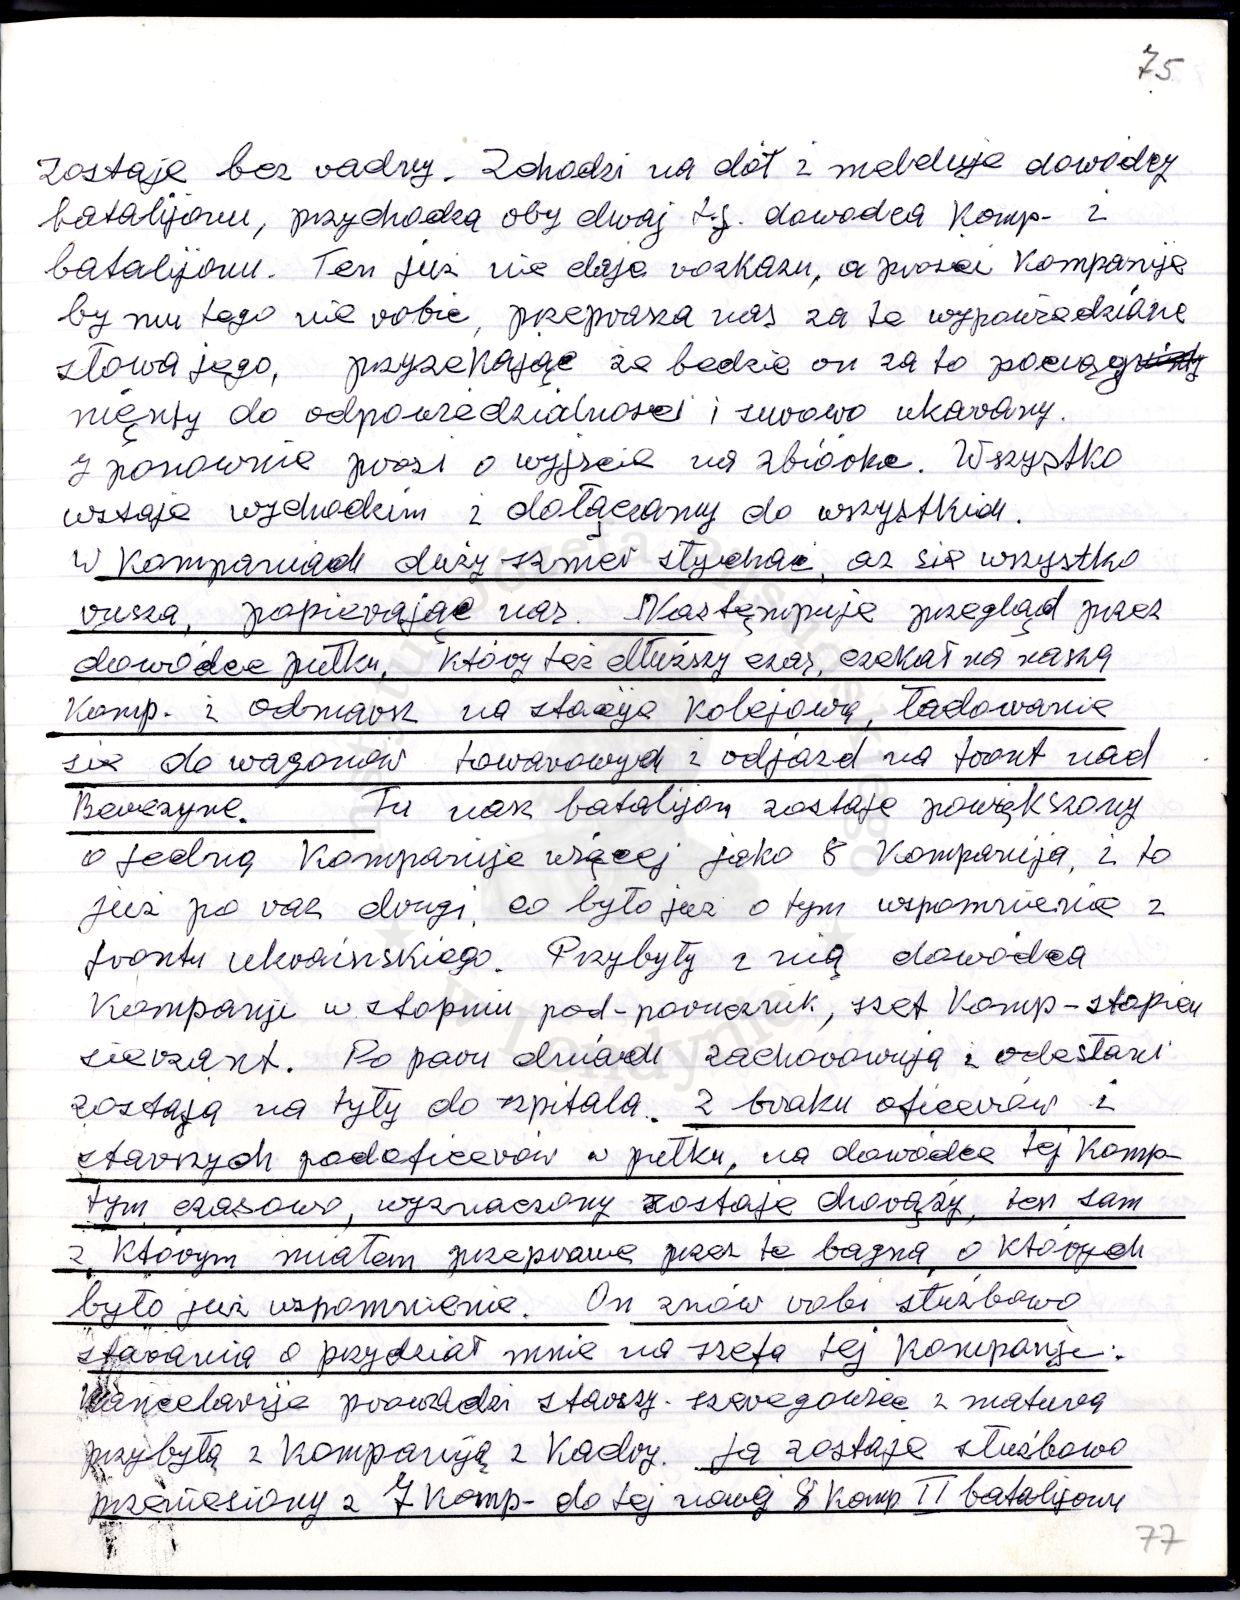 75
zostaje bez radny. Zchodzi na dół i melduje dowódzy
batalijonu, przychodzą oby dwaj t.j. dowodca Komp- i
batalijonu. Ten już nie daje rozkazu, a prosei Kompanije
by mu tego nie robić, przeprasza nas za te wypowiedziane
słowa jego, przyzekając że bedzie on za to pociąg
nięnty do odpowiedzialności i surowo ukarany.
I ponownie prosi o wyjscie na zbiórke. Wszystko
wstaje wychodzim i dołączamy do wszystkich.
W Kompaniach duży szmer słychać, aż sie wszystko
rusza, popierając nas. Nastęmpuje przegląd przez
dowódce pułku, który też dłuższy czas, czekał na naszą
Komp- i odmarsz na stacije Kolejową, ładowanie
sie do wagonów towarowych i odjazd na front nad
Berezyne. Tu nasz batalijon zostaje powiększony
o jedną Kompanije więcej jako 8 Kompanija, i to
już po raz drugi, co było już o tym wspomnienie z
frontu ukraińskiego. Przybyły z nią dowódca
Kompanji w stopniu pod-porucznik, szef Komp-stopien
sierżant. Po paru dniach zachorowują i odesłani
zostają na tyły do szpitala. Z braku oficerów i
starszych podoficerów w pułku, na dowódce tej Komp-
tym czasowo, wyznaczony zostaje chorąży, ten sam
z, którym miałem przeprawe przez te bagna, o których
było już wspomnienie. On znów robi służbowo
starania o przydział mnie na szefa tej Kompanji.
Kancelarije prowadzi starszy-szeregowiec z maturą
przybyłą z Kompaniją z Kadry. Ja zostaje służbowo
przeniesiony z 7 Komp- do tej nowej 8 Komp II batalijonu
77